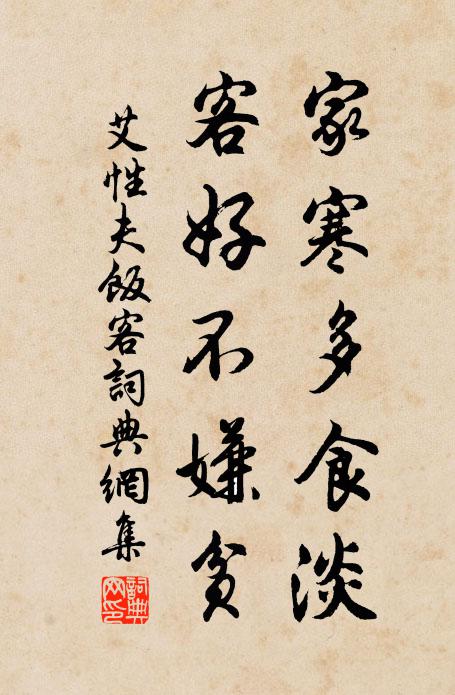 家寒多食淡
客好不嫌貧
艾性夫飯客詞典網集
詞典